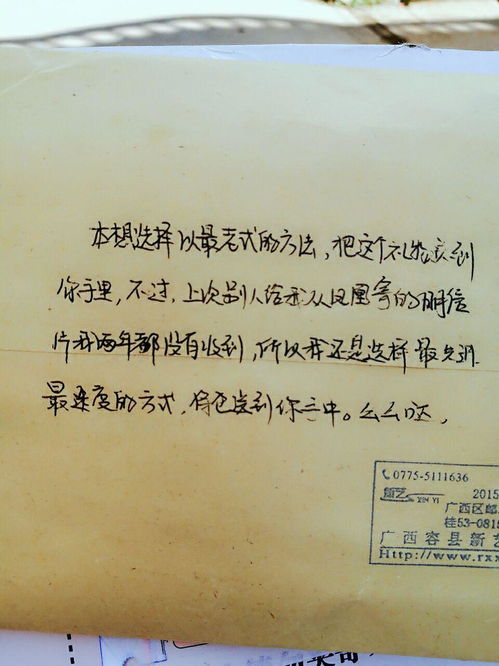 本想选择以最老式的方法，把这个礼物交到
你手里，不过，上次别人给我从凤凰寄的明信
片我两年都没有收到，所以我还是选择最先进
最速度的方式，将它送到你手中。么么哒，
0775-5111636
新艺 XIN YI 2015
广西区邮
桂53-0815
广西容县新艺
Http://www.rxx